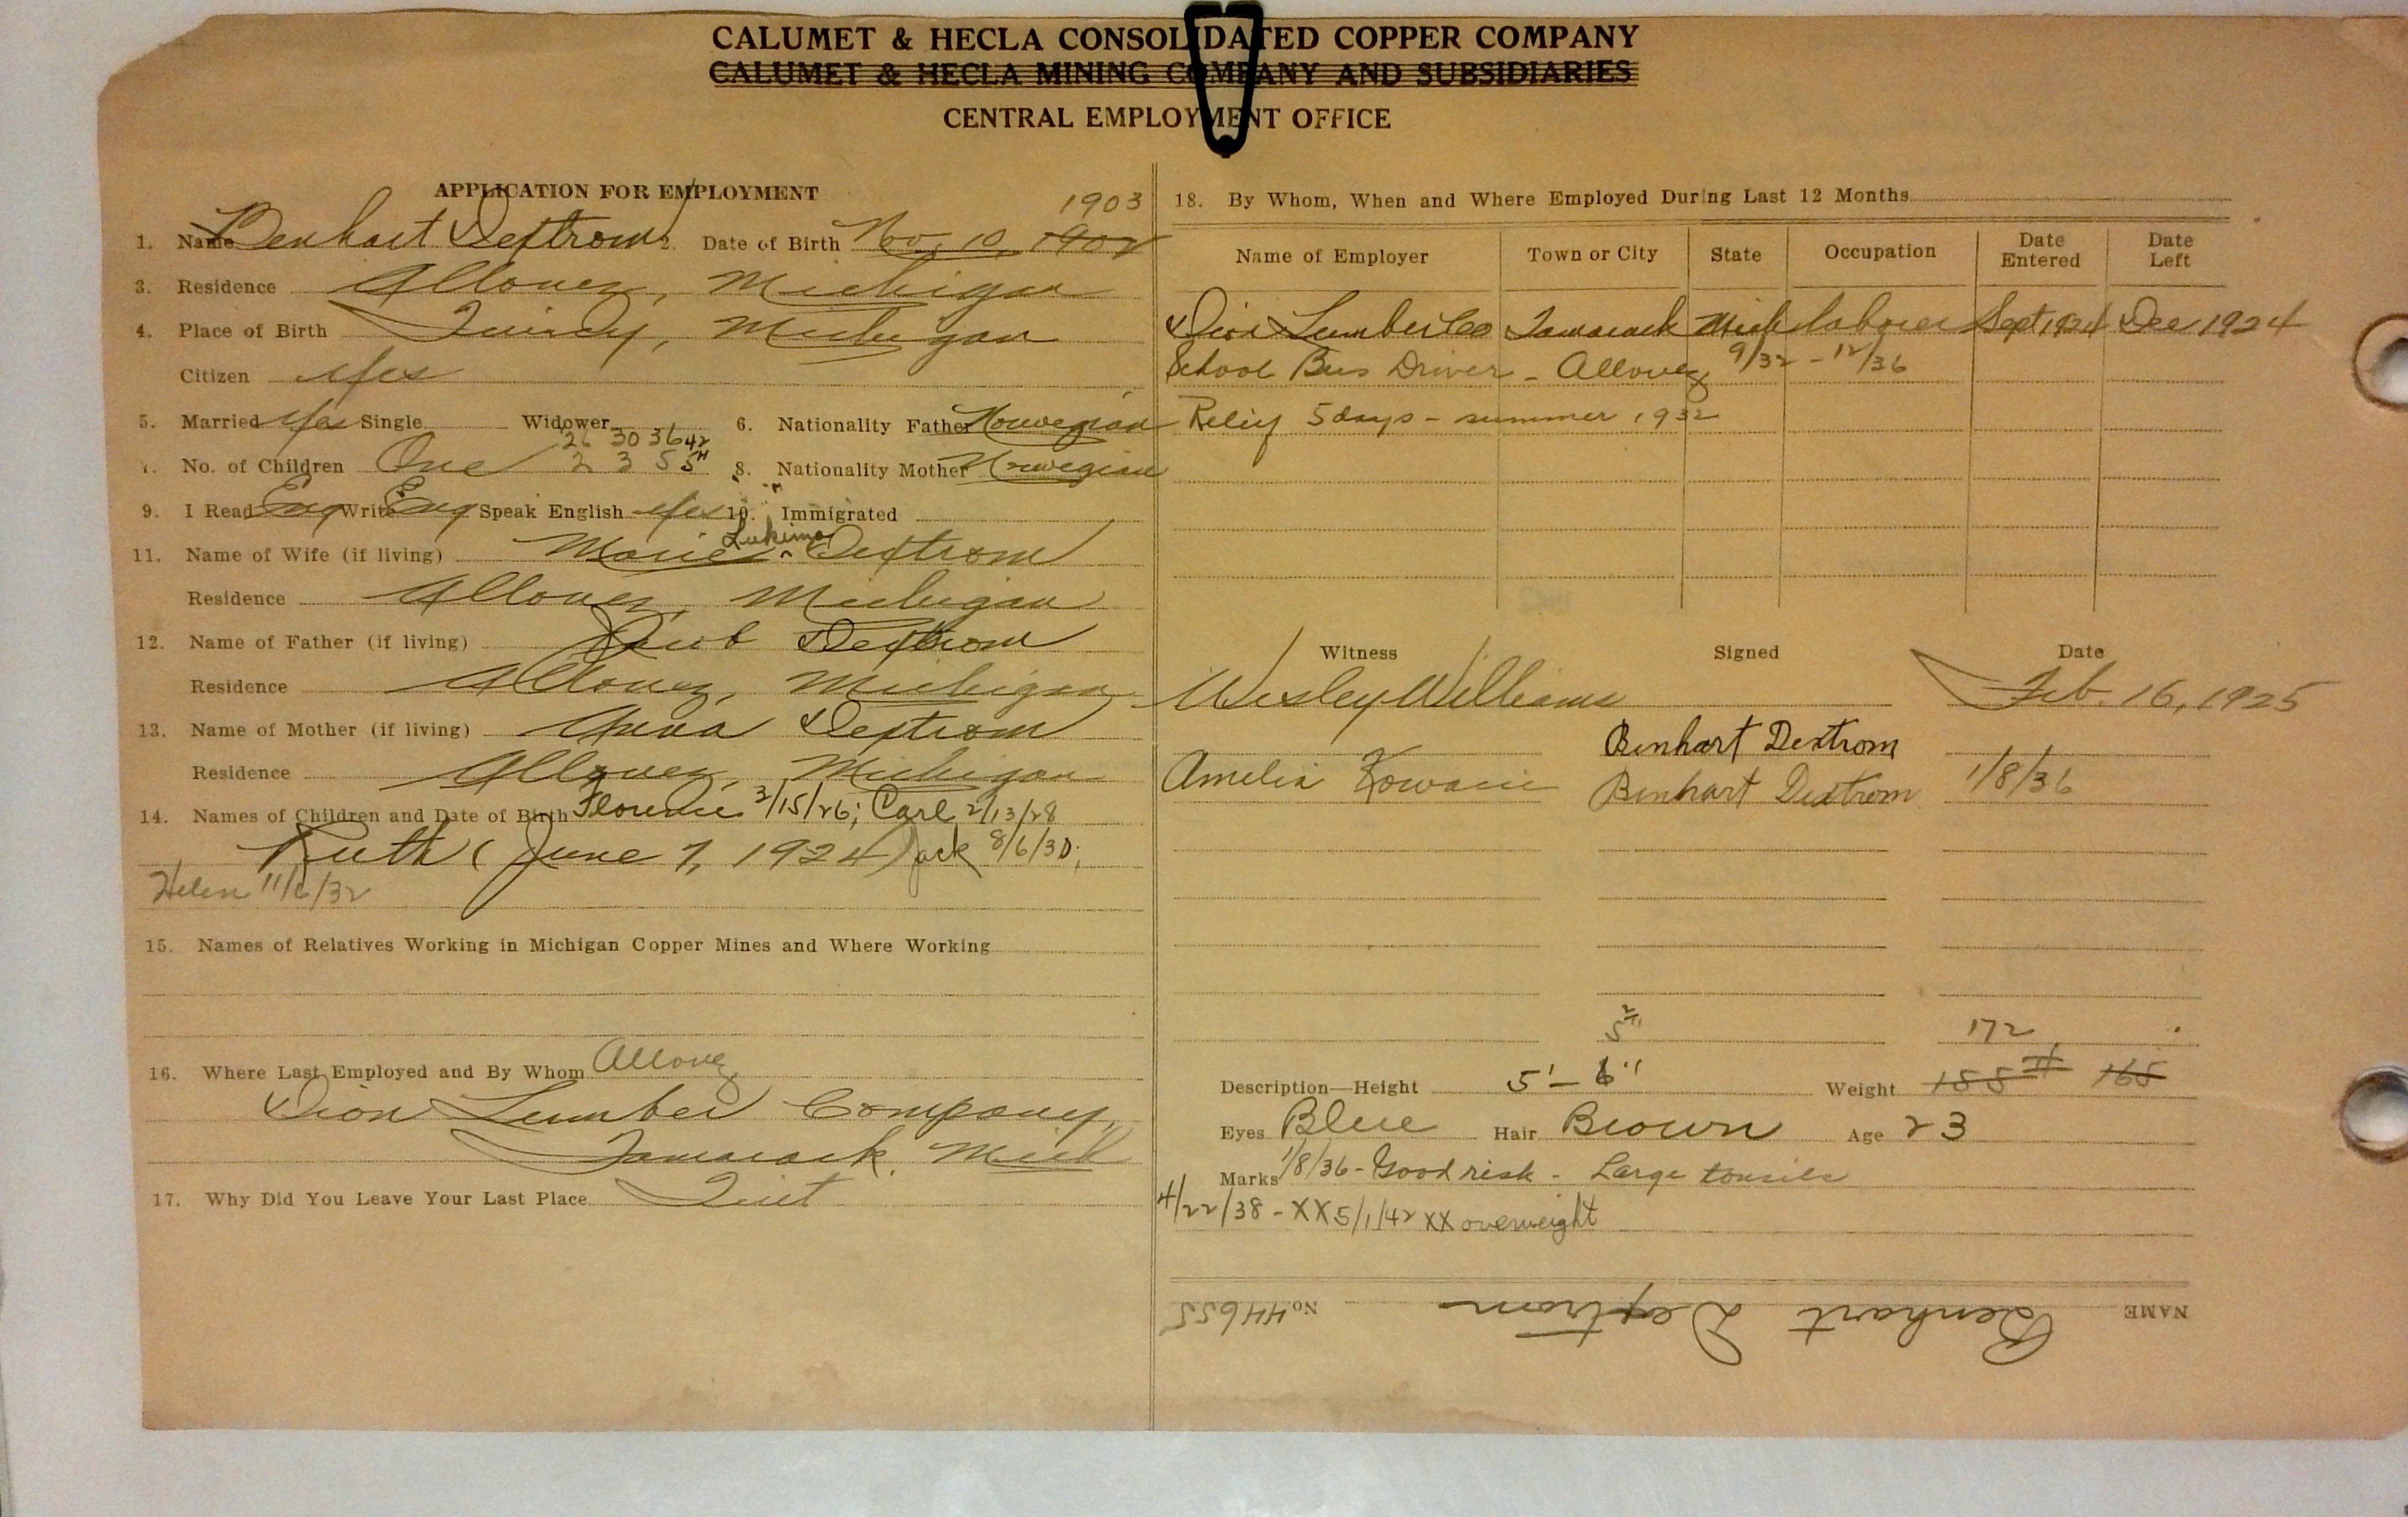 CALUMET & HECLA CONSOLIDATED COPPER COMPANY
CALUMET & HECLA MINING COMPANY AND SUBSIDIARIES
CENTRAL EMPLOYMENT OFFICE
APPLICATION FOR EMPLOYMENT
1903
1. Name Benhart Dextrom 2. Date of Birth Nov. 10, 1902
3. Residence Allouez, Michigan
4. Place of Birth Quincy, Michigan
Citizen Yes
5. Married Yes Single Widower 6. Nationality Father Norwegian
26 30 36 42
7. No. of Children One 2 3 5 5 8. Nationality Mother Norwegian
9. I Read Eng Write Eng Speak English Yes 10. Immigrated
11. Name of Wife (if living) Marie Dextrom
Residence Allouez, Michigan
12. Name of Father (if living) Dextrom
Residence Allouez, Michigan
13. Name of Mother (if living) Anna Dextrom
Residence Allouez, Michigan
14. Names of Children and Date of Birth Florence 3/15/26; Carl 2/13/28
Ruth (June 7, 1924) Jack 8/6/30;
Helen 11/6/32
15. Names of Relatives Working in Michigan Copper Mines and Where Working
16. Where Last Employed and By Whom Allouez
Dion Lumber Company,
Tamarack, Mich
17. Why Did You Leave Your Last Place Quit
18. By Whom, When and Where Employed During Last 12 Months
Name of Employer Town or City State Occupation Date Entered Date Left
Dion Lumber Co Tamarack Mich laborer Sept 1924 Dec 1924
School Bus Driver - Allouez 9/32 - 12/36
Relief 5 days - summer 1932
Witness Signed Date
Wesley Williams Feb. 16, 1925
Benhart Dextrom
Amelia Benhart Dextrom 1/8/36
172
Description—Height 5'-6" Weight 158# 165
Eyes Blue Hair Brown Age 23
Marks 1/8/36 - Good risk - Large tonsils
4/22/38 - XX 5/1/42 XX overweight
NAME Benhart Dextrom No. 44655